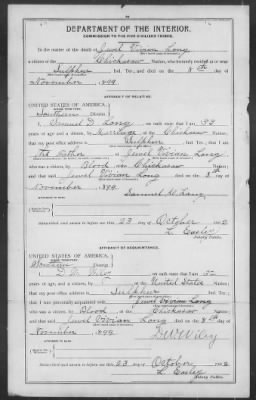 DEPARTMENT OF THE INTERIOR.
COMMISSION TO THE FIVE CIVILIZED TRIBES.
In the matter of the death of Jewel Vivian Long
a citizen of the Chickasaw Nation, who formerly resided at or near
Sulphur Ind. Ter., and died on the 8th day of
November, 1899
AFFIDAVIT OF RELATIVE.
UNITED STATES OF AMERICA,
INDIAN TERRITORY,
Southern District.
I, Samuel D. Long, on oath state that I am 33
years of age and a citizen, by Marriage of the Chickasaw Nation;
that my post office address is Sulphur, Ind. Ter.; that I am
the father of Jewel Vivian Long
who was a citizen, by Blood, of the Chickasaw Nation;
and that said Jewel Vivian Long died on the 8th day of
November, 1899
Samuel D. Long
Subscribed and sworn to before me this 23 day of October 1902
Notary Public.
AFFIDAVIT OF ACQUAINTANCE.
UNITED STATES OF AMERICA,
INDIAN TERRITORY,
Southern District.
I, D. W. Wiley, on oath state that I am 52
years of age, and a citizen by of the United States
that my post office address is Sulphur, Ind. Ter.;
that I was personally acquainted with Jewel Vivian Long
who was a citizen, by Blood, of the Chickasaw Nation;
and that said Jewel Vivian Long died on the 8th day of
November, 1899
D W Wiley
Subscribed and sworn to before me this 23 day of October 1902
Notary Public.